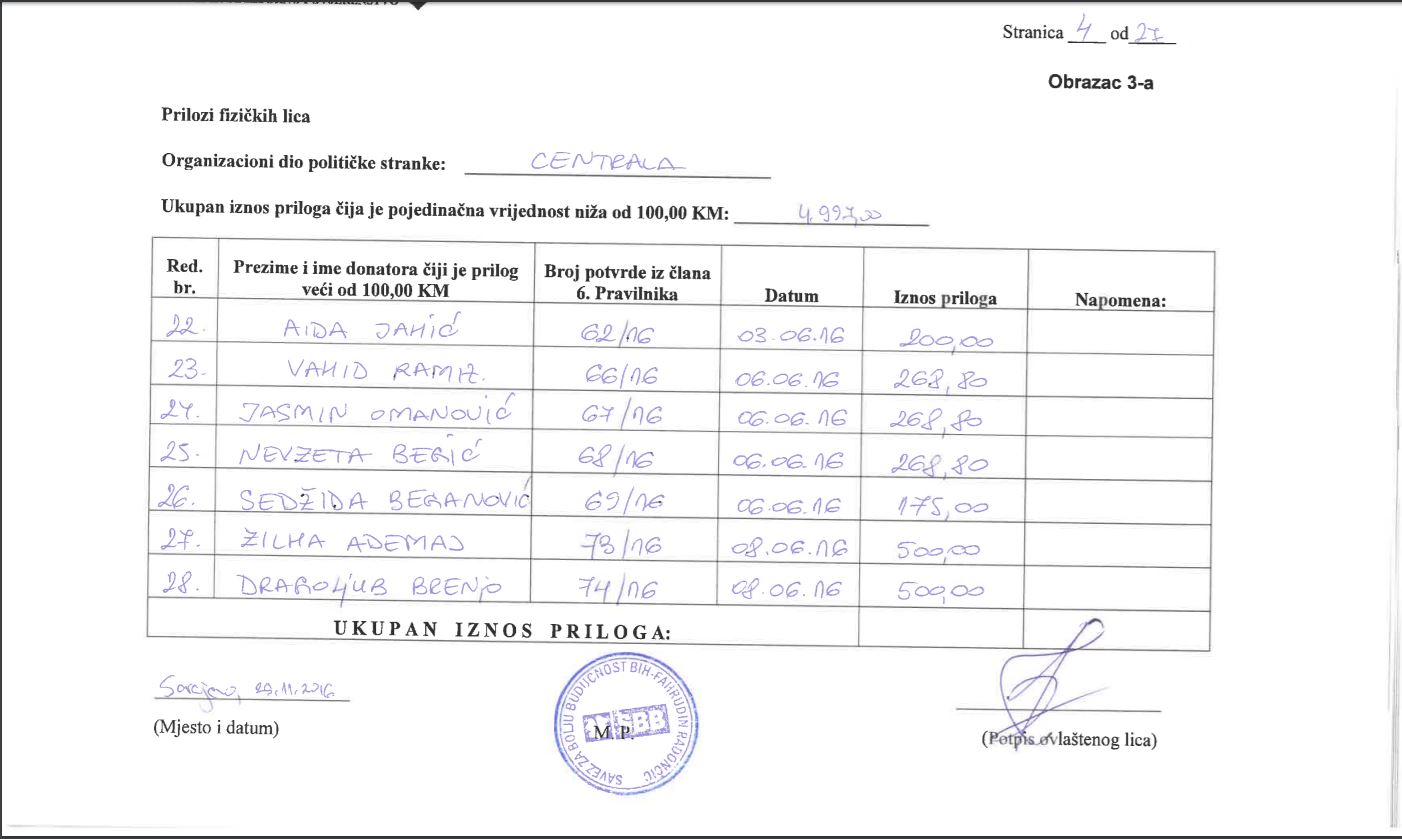 Stranica 4 od 27
Obrazac 3-a
Prilozi fizičkih lica
Organizacioni dio političke stranke: CENTRALA
Ukupan iznos priloga čija je pojedinačna vrijednost niža od 100,00 KM: 4.997,00
Red. br. Prezime i ime donatora čiji je prilog veći od 100,00 KM Broj potvrde iz člana 6. Pravilnika Datum Iznos priloga Napomena:
22. AIDA JAHIĆ 62/16 03.06.16 200,00
23. VAHID RAMIZ. 66/16 06.06.16 268,80
24. JASMIN OMANOVIĆ 67/16 06.06.16 268,80
25. NEVZETA BEGIĆ 68/16 06.06.16 268,80
26. SEDŽIDA BEGANOVIĆ 69/16 06.06.16 175,00
27. ZILHA ADEMAJ 73/16 08.06.16 500,00
28. DRAGOLJUB BRENJO 74/16 08.06.16 500,00
UKUPAN IZNOS PRILOGA:
Sarajevo, 29.11.2016
(Mjesto i datum)
SAVEZ ZA BOLJU BUDUĆNOST BIH-FAHRUDIN RADONČIĆ
SBB
M.P.
(Potpis ovlaštenog lica)